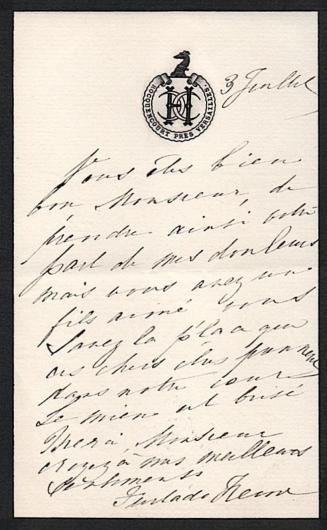 ROCQUENCOURT PRÈS VERSAILLES.
3 Juillet
Vous êtes bien
bon Monsieur, de
prendre ainsi votre
part de mes douleurs
mais vous avez un
fils aimé vous
savez la place que
ces chers êtres prennent
dans notre coeur
Le mien est brisé
Merci, Monsieur
croyez à mes meilleurs
sentiments
Furtado Heine